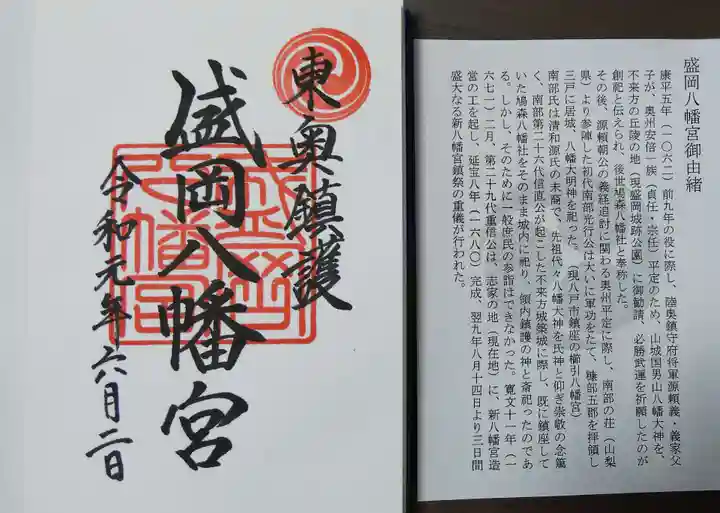 東奥鎮護
盛岡八幡宮
令和元年六月二日
盛岡八幡宮御由緒
康平五年(一〇六二)前九年の役に際し、陸奥鎮守府将軍源頼義・義家父
子が、奥州安倍一族(貞任・宗任)平定のため、山城国男山八幡大神を、
不来方の丘陵の地(現盛岡城跡公園)に御勧請、必勝武運を祈願したのが
創祀と伝えられ、後世鳩森八幡社と奉称した。
その後、源頼朝公の義経追討に関わる奥州平定に際し、南部の荘(山梨
県)より参陣した初代南部光行公は大いに軍功をたて、糠部五郡を拝領し
三戸に居城、八幡大明神を祀った。(現八戸市鎮座の櫛引八幡宮)
南部氏は清和源氏の末裔で、先祖代々八幡大神を氏神と仰ぎ崇敬の念篤
く、南部第二十六代信直公が起こした不来方城築城に際し、既に鎮座して
いた鳩森八幡社をそのまま城内に祀り、領内鎮護の神と斎祀ったのであ
る。しかし、そのために一般庶民の参詣はできなかった。寛文十一年(一
六七一)二月、第二十九代重信公は、志家の地(現在地)に、新八幡宮造
営の工を起し、延宝八年(一六八〇)完成、翌九年八月十四日より三日間
盛大なる新八幡宮鎮祭の重儀が行われた。
盛岡
八幡宮